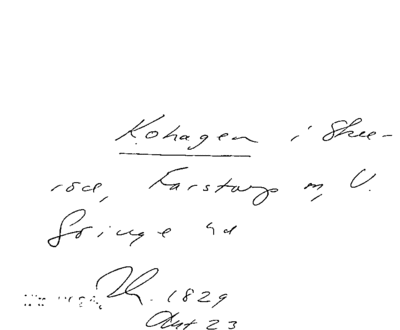 Kohagen i Skee-
röd, Farstorp sn, V.
Göinge hd
1829
Akt 23